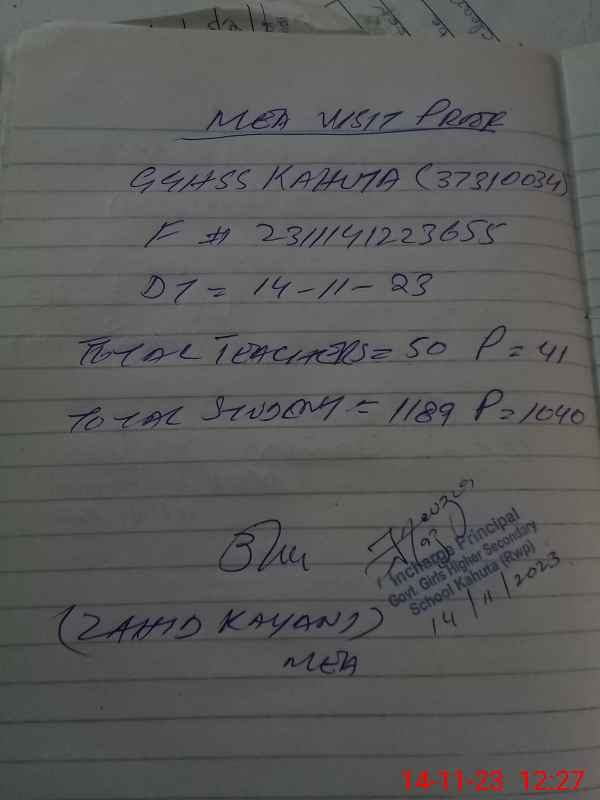 MEA VISIT PROOF
GGHSS KAHUTA (37310034)
F # 2311141223655
DT = 14-11-23
TOTAL TEACHERS = 50 P = 41
TOTAL STUDENT = 1189 P = 1040
Incharge Principal
Govt. Girls Higher Secondary
School Kahuta (Rwp)
14/11/2023
(ZAHID KAYANI)
MEA
14-11-23 12:27